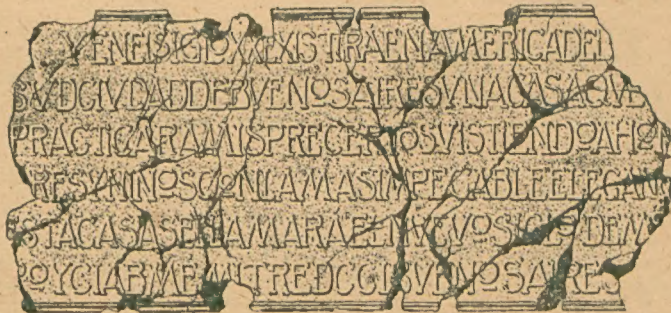 YENELSIGLOXXEXISTIRAENAMERICADEL
SVDCIVDADDEBVENOSAIRESVNACASAQVE
PRACTICARAMISPRECEPTOSVISTIENDOAHO
RESYNIÑOSCONLAMASIMPECABLEELEGAN
ESTACASASELLAMARAELNVEVOSIGLODEM
ROYCIABMEMITREDCCIBVENOSAIRES